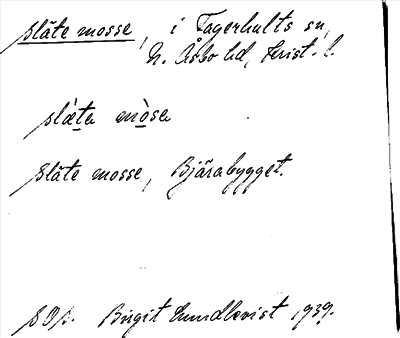 släte mosse, i Fagerhults sn,
N. Åsbo hd, Krist. l.
slä̀ta mòsa
släte mosse, Bjärabygget.
Birgit Lundkvist 1939.